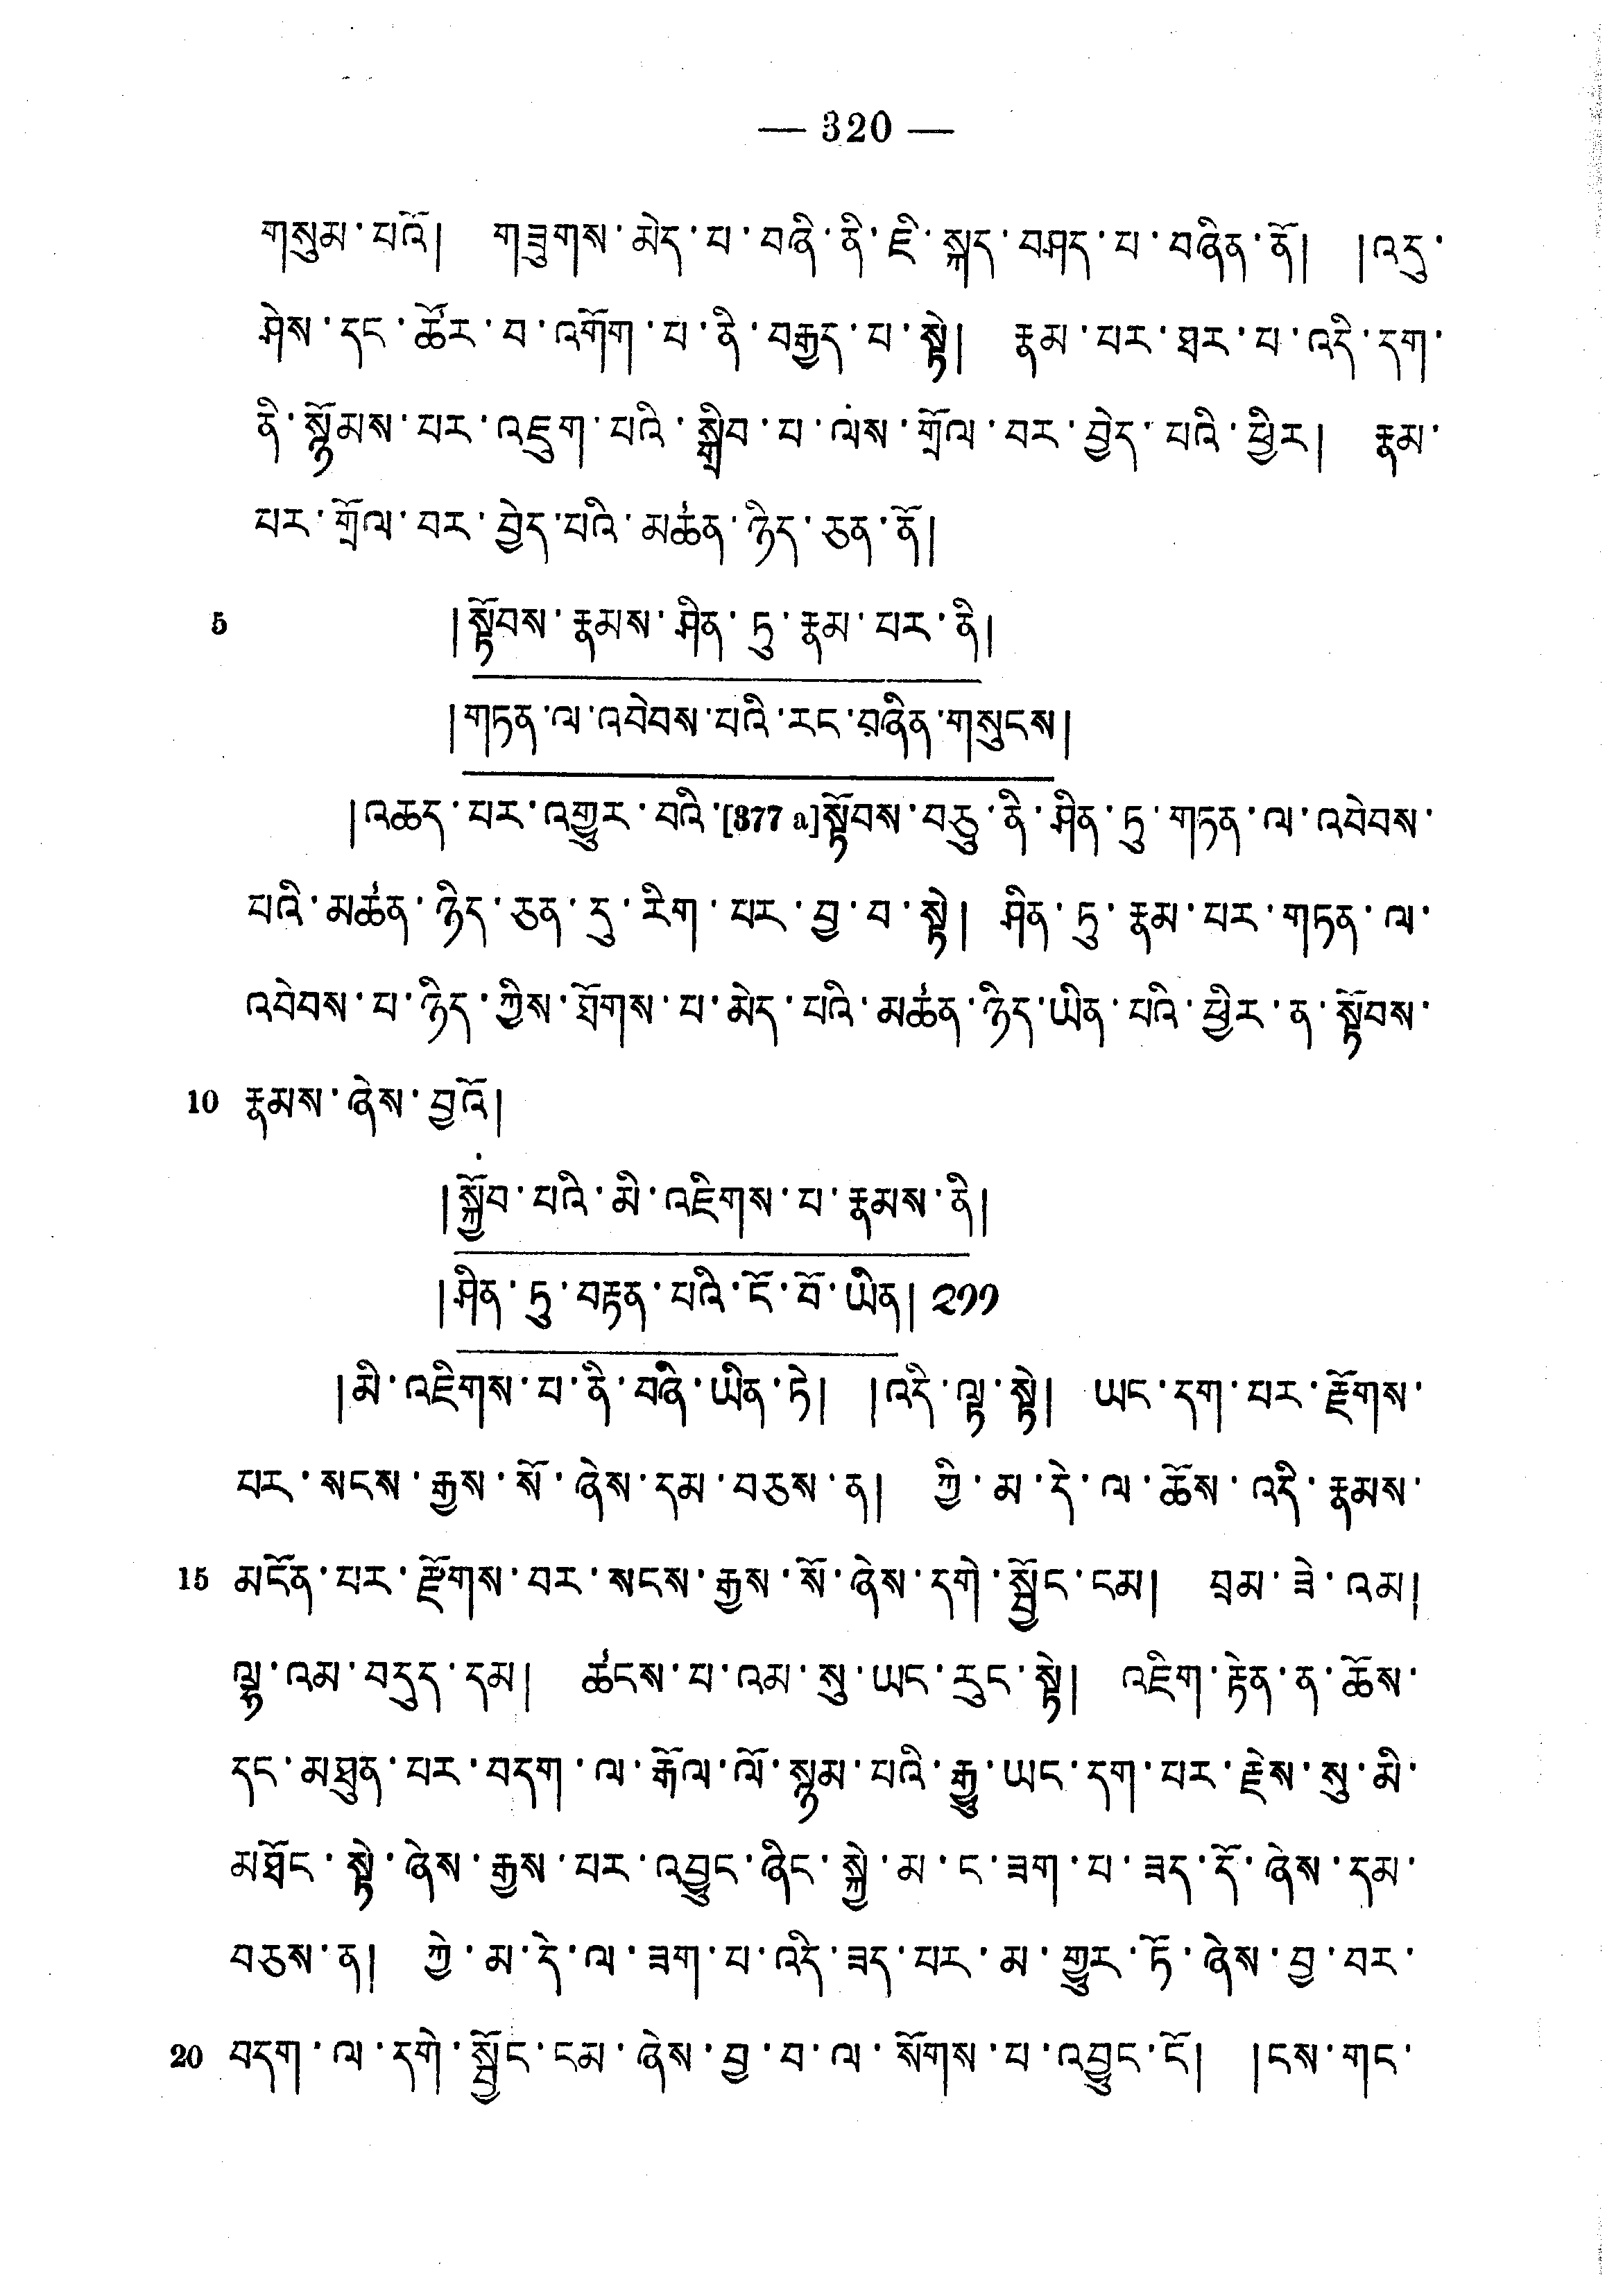 — 320 —
གསུམ་པའོ། གཟུགས་མེད་པ་བཞི་ནི་ཇི་སྐད་བཤད་པ་བཞིན་ནོ། །འདུ་
ཤེས་དང་ཚོར་བ་འགོག་པ་ནི་བརྒྱད་པ་སྟེ། རྣམ་པར་ཐར་པ་འདི་དག་
ནི་སྙོམས་པར་འཇུག་པའི་སྒྲིབ་པ་ལས་གྲོལ་བར་བྱེད་པའི་ཕྱིར། རྣམ་
པར་གྲོལ་བར་བྱེད་པའི་མཚན་ཉིད་ཅན་ནོ།
5 །སྟོབས་རྣམས་ཤིན་ཏུ་རྣམ་པར་ནི།
།གཏན་ལ་འབེབས་པའི་རང་བཞིན་གསུངས།
།འཆད་པར་འགྱུར་བའི་[377 a]སྟོབས་བཅུ་ནི་ཤིན་ཏུ་གཏན་ལ་འབེབས་
པའི་མཚན་ཉིད་ཅན་དུ་རིག་པར་བྱ་བ་སྟེ། ཤིན་ཏུ་རྣམ་པར་གཏན་ལ་
འབེབས་པ་ཉིད་ཀྱིས་ཐོགས་པ་མེད་པའི་མཚན་ཉིད་ཡིན་པའི་ཕྱིར་ན་སྟོབས་
10 རྣམས་ཞེས་བྱའོ།
།སྐྱོབ་པའི་མི་འཇིགས་པ་རྣམས་ནི།
།ཤིན་ཏུ་བརྟན་པའི་ངོ་བོ་ཡིན། ༢༡༡
།མི་འཇིགས་པ་ནི་བཞི་ཡིན་ཏེ། །འདི་ལྟ་སྟེ། ཡང་དག་པར་རྫོགས་
པར་སངས་རྒྱས་སོ་ཞེས་དམ་བཅས་ན། ཀྱི་མ་དེ་ལ་ཆོས་འདི་རྣམས་
15 མངོན་པར་རྫོགས་བར་སངས་རྒྱས་སོ་ཞེས་དགེ་སྦྱོང་ངམ། བྲམ་ཟེ་འམ།
ལྷ་འམ་བདུད་དམ། ཚངས་པ་འམ་སུ་ཡང་རུང་སྟེ། འཇིག་རྟེན་ན་ཆོས་
དང་མཐུན་པར་བདག་ལ་རྒོལ་ལོ་སྙམ་པའི་རྒྱུ་ཡང་དག་པར་རྗེས་སུ་མི་
མཐོང་སྟེ་ཞེས་རྒྱས་པར་འབྱུང་ཞིང་སྐྱེ་མ་ང་ཟག་པ་ཟད་དོ་ཞེས་དམ་
བཅས་ན། ཀྱེ་མ་དེ་ལ་ཟག་པ་འདི་ཟད་པར་མ་གྱུར་ཏོ་ཞེས་བྱ་བར་
20 བདག་ལ་དགེ་སྦྱོང་ངམ་ཞེས་བྱ་བ་ལ་སོགས་པ་འབྱུང་ངོ། །ངས་གང་